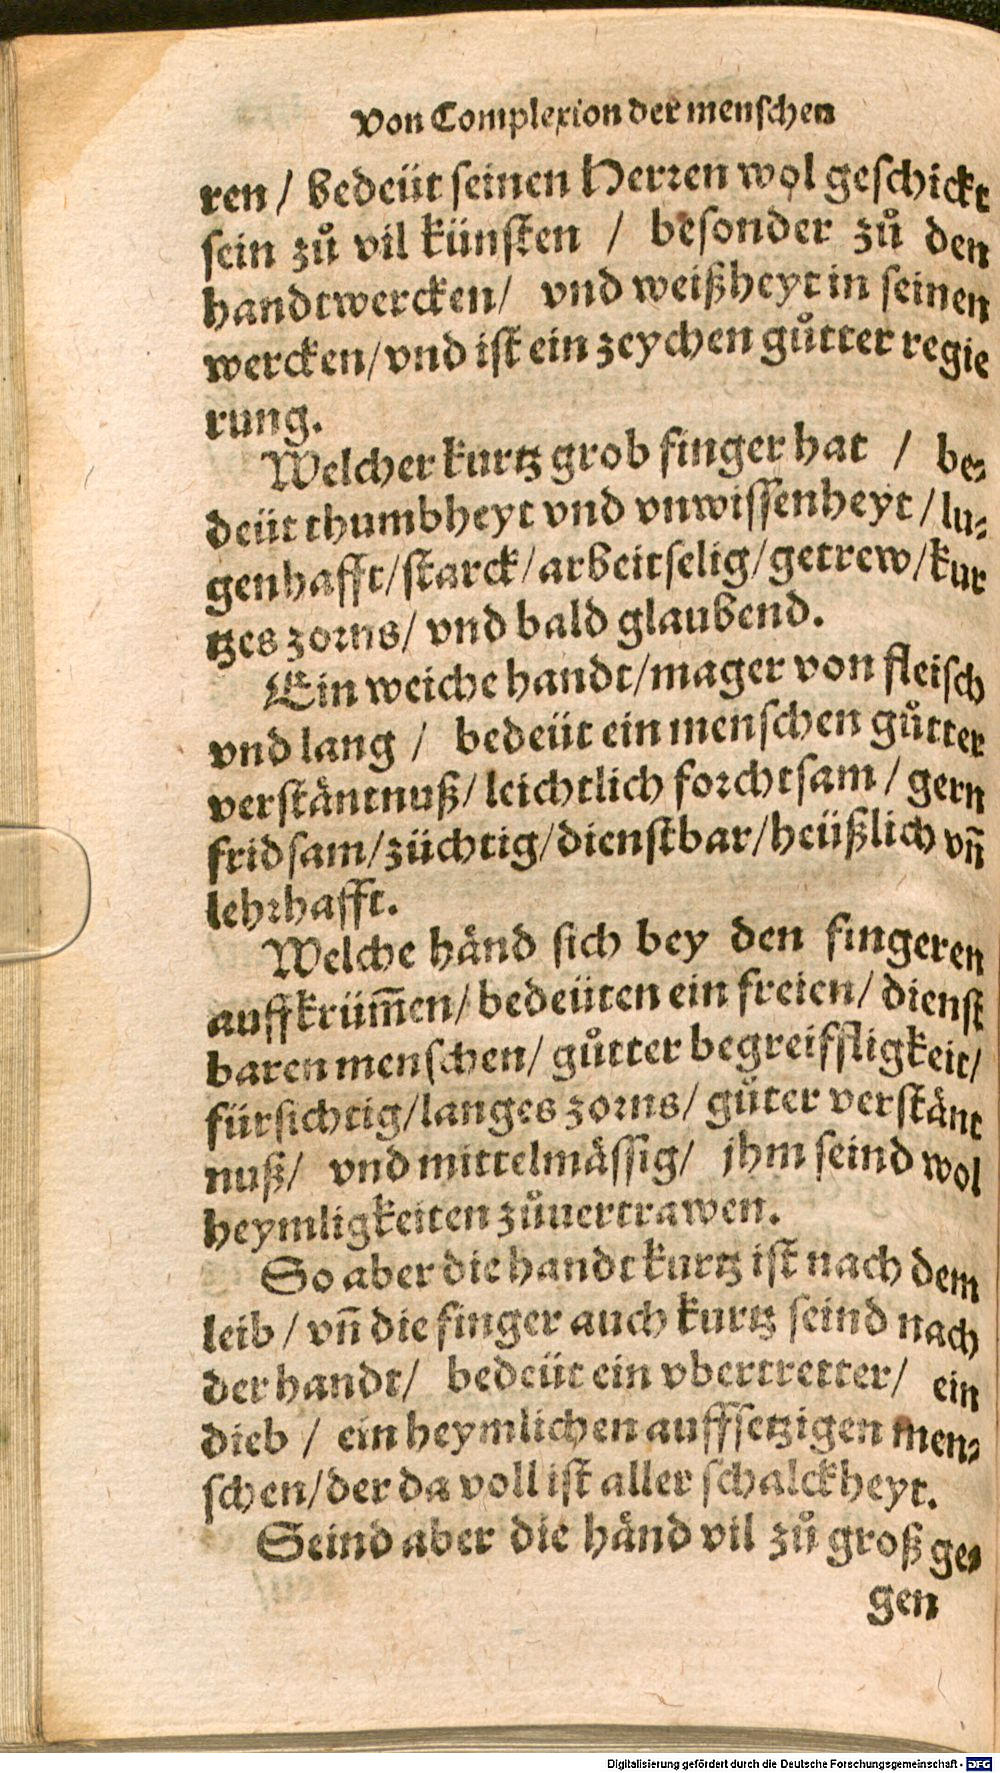 Von Complexion der menschen
ren / bedeüt seinen Herren wol geschickt
sein zů vil künsten / besonder zů den
handtwercken/ vnd weißheyt in seinen
wercken/vnd ist ein zeychen gůtter regie
rung.
Welcher kurtz grob finger hat / be-
deüt thumbheyt vnd vnwissenheyt /lu-
genhafft/starck/arbeitselig/getrew/kur
tzes zorns/ vnd bald glaubend.
Ein weiche handt/mager von fleisch
vnd lang / bedeüt ein menschen gůtter
verstäntnuß/ leichtlich forchtsam / gern
fridsam/züchtig/dienstbar/heüßlich vñ
lehrhafft.
Welche händ sich bey den fingeren
auffkrüm̃en/ bedeüten ein freien/ dienst
baren menschen/ gůtter begreiffligkeit/
fürsichtig/langes zorns/ gůter verstänt
nuß/ vnd mittelmässig/ jhm seind wol
heymligkeiten zůuertrawen.
So aber die handt kurtz ist nach dem
leib / vñ die finger auch kurtz seind nach
der handt/ bedeüt ein vbertretter/ ein
dieb / ein heymlichen auffsetzigen men-
schen/der da voll ist aller schalckheyt.
Seind aber die händ vil zů groß ge-
gen
Digitalisierung gefördert durch die Deutsche Forschungsgemeinschaft - DFG